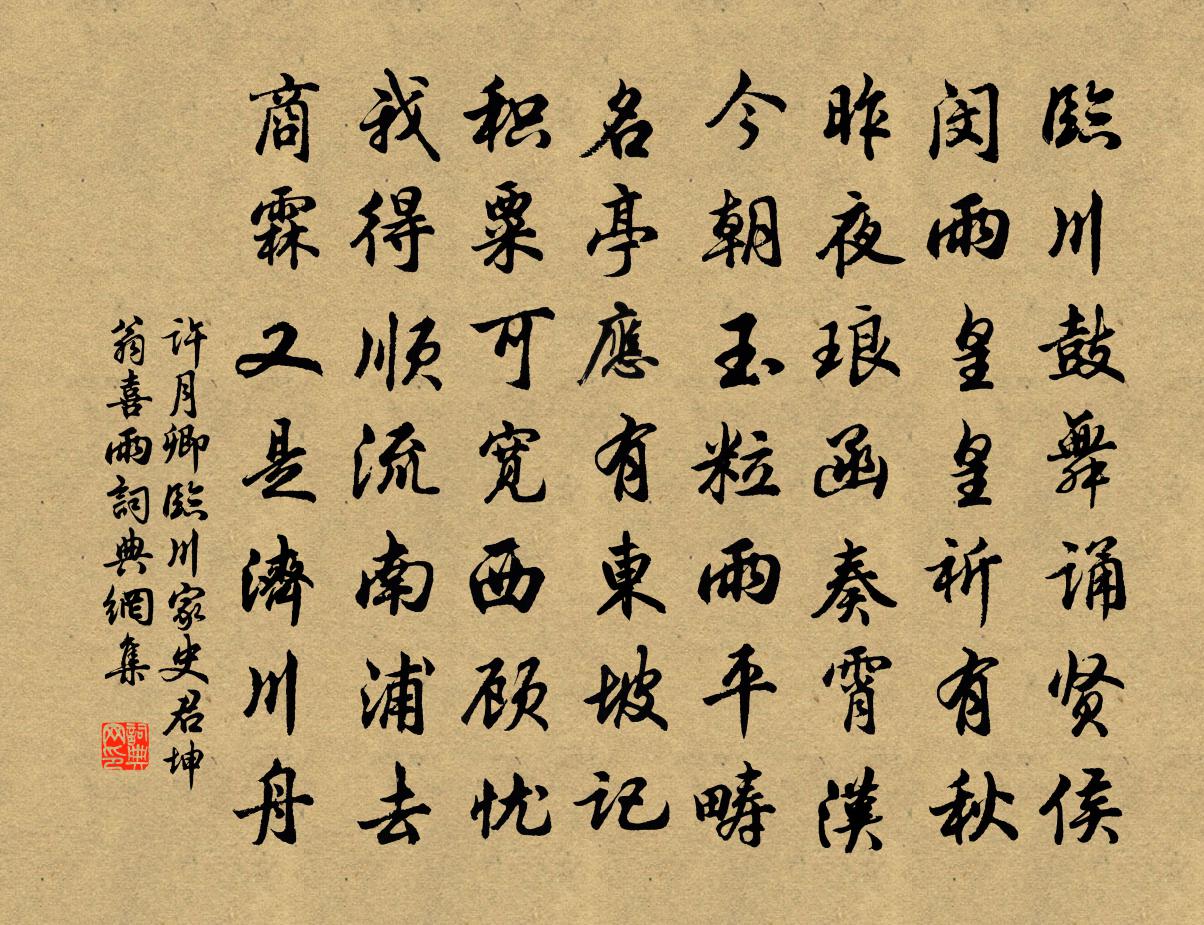 臨川鼓舞诵贤侯
闵雨皇皇祈有秋
昨夜琅函奏霄漢
今朝玉粒雨平畴
名亭應有東坡记
积粟可宽西顾忧
我得顺流南浦去
商霖又是濟川舟
許月卿臨川家史君坤
翁喜雨詞典網集
詞典
网印